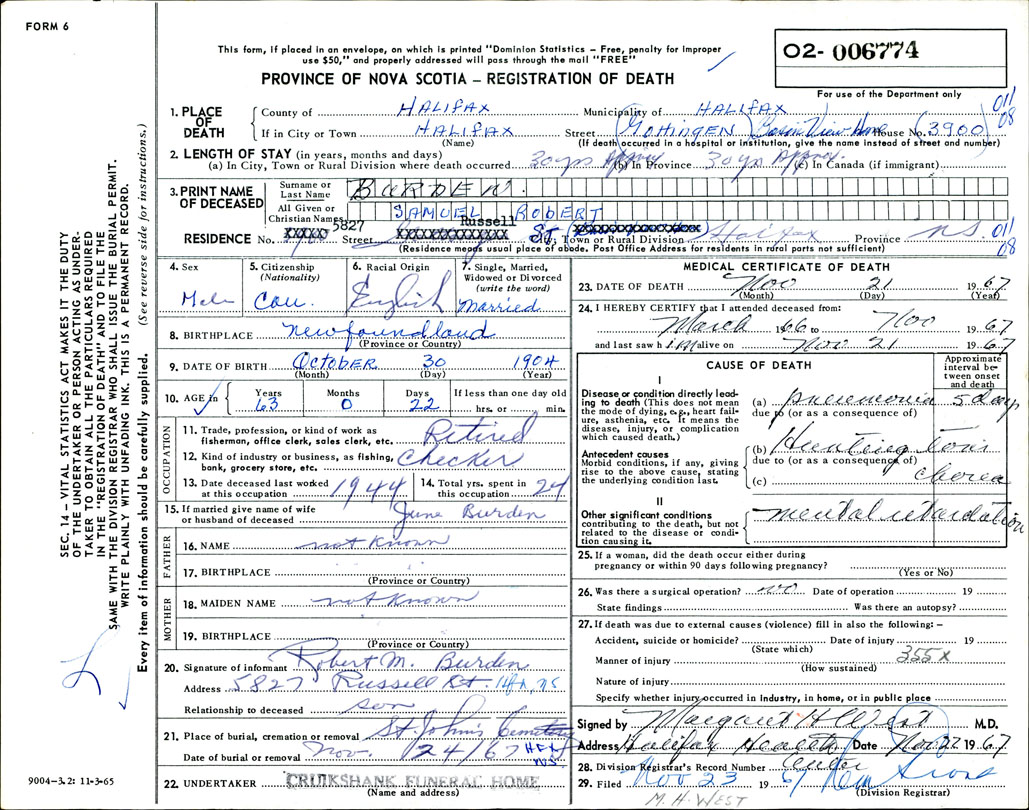 FORM 6
This form, if placed in an envelope, on which is printed "Dominion Statistics – Free, penalty for improper
use $50," and properly addressed will pass through the mail "FREE"
PROVINCE OF NOVA SCOTIA – REGISTRATION OF DEATH
02- 006774
For use of the Department only
011
08
1. PLACE OF DEATH
County of HALIFAX Municipality of HALIFAX
If in City or Town HALIFAX Street (GOTTINGEN) Basin View Home House No. (3900)
(Name) (If death occurred in a hospital or institution, give the name instead of street and number)
2. LENGTH OF STAY (in years, months and days)
(a) In City, Town or Rural Division where death occurred 30 yrs Approx (b) In Province 30 yrs Approx. (c) In Canada (if immigrant)
3. PRINT NAME OF DECEASED
Surname or Last Name BURDEN.
All Given or Christian Names SAMUEL ROBERT
RESIDENCE No. XXXX 5827 Street Russell St City, Town or Rural Division Halifax Province N.S.
011
08
(Residence means usual place of abode. Post Office Address for residents in rural parts not sufficient)
4. Sex
Male
5. Citizenship
(Nationality)
Can.
6. Racial Origin
English
7. Single, Married,
Widowed or Divorced
(write the word)
Married
8. BIRTHPLACE Newfoundland
(Province or Country)
9. DATE OF BIRTH October 30 1904
(Month) (Day) (Year)
10. AGE in Years 63 Months 0 Days 22 If less than one day old hrs. or min.
OCCUPATION
11. Trade, profession, or kind of work as
fisherman, office clerk, sales clerk, etc. Retired
12. Kind of industry or business, as fishing,
bank, grocery store, etc. Checker
13. Date deceased last worked
at this occupation 1944
14. Total yrs. spent in
this occupation 24
15. If married give name of wife
or husband of deceased June Burden
FATHER
16. NAME not known
17. BIRTHPLACE
(Province or Country)
MOTHER
18. MAIDEN NAME not known
19. BIRTHPLACE
(Province or Country)
20. Signature of informant Robert M. Burden
Address 5827 Russell St. Hfx, NS
Relationship to deceased son
21. Place of burial, cremation or removal St. John's Cemetery
Date of burial or removal Nov. 24/67 HFX NS
22. UNDERTAKER CRUIKSHANK FUNERAL HOME
(Name and address)
MEDICAL CERTIFICATE OF DEATH
23. DATE OF DEATH Nov 21 1967
(Month) (Day) (Year)
24. I HEREBY CERTIFY that I attended deceased from:
March 1966 to Nov 1967
and last saw him alive on Nov 21 1967
CAUSE OF DEATH
Approximate
interval be-
tween onset
and death
I
Disease or condition directly lead-
ing to death (This does not mean
the mode of dying, e.g., heart fail-
ure, asthenia, etc. It means the
disease, injury, or complication
which caused death.)
(a) pneumonia 5 days
due to (or as a consequence of)
Antecedent causes
Morbid conditions, if any, giving
rise to the above cause, stating
the underlying condition last.
(b) Huntingtons
due to (or as a consequence of)
(c) chorea
II
Other significant conditions
contributing to the death, but not
related to the disease or condi-
tion causing it.
mental retardation
25. If a woman, did the death occur either during
pregnancy or within 90 days following pregnancy?
(Yes or No)
26. Was there a surgical operation? no Date of operation 19
State findings Was there an autopsy?
27. If death was due to external causes (violence) fill in also the following: –
Accident, suicide or homicide? Date of injury 19
(State which)
355X
Manner of injury
(How sustained)
Nature of injury
Specify whether injury occurred in industry, in home, or in public place
Signed by Margaret H West M.D.
Address Halifax Health Date Nov 22 1967
28. Division Registrar's Record Number
29. Filed Nov 23 196
(Division Registrar)
M. H. WEST
SEC. 14 – VITAL STATISTICS ACT MAKES IT THE DUTY
OF THE UNDERTAKER OR PERSON ACTING AS UNDER-
TAKER TO OBTAIN ALL THE PARTICULARS REQUIRED
IN THE "REGISTRATION OF DEATH" AND TO FILE THE
SAME WITH THE DIVISION REGISTRAR WHO SHALL ISSUE THE BURIAL PERMIT.
WRITE PLAINLY WITH UNFADING INK. THIS IS A PERMANENT RECORD.
Every item of information should be carefully supplied. (See reverse side for instructions.)
9004-3.2: 11-3-65